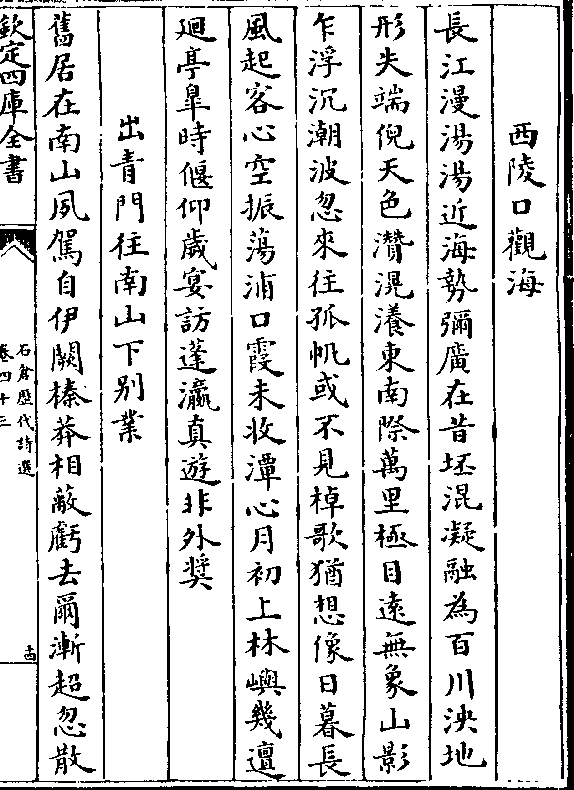 西陵口觀海
長江漫湯湯近海勢彌廣在昔坯混凝融為百川泱地
形失端倪天色濳滉瀁東南際萬里極目遠無象山影
乍浮沉潮波忽來往孤帆或不見棹歌猶想像日暮長
風起客心空振蕩浦口霞未收潭心月初上林嶼幾邅
廻亭臯時偃仰歲宴訪蓬瀛真遊非外奬
出青門往南山下别業
舊居在南山夙駕自伊闕榛莽相蔽虧去爾漸超忽散
欽定四庫全書
石倉歴代詩選
卷四十三
十四